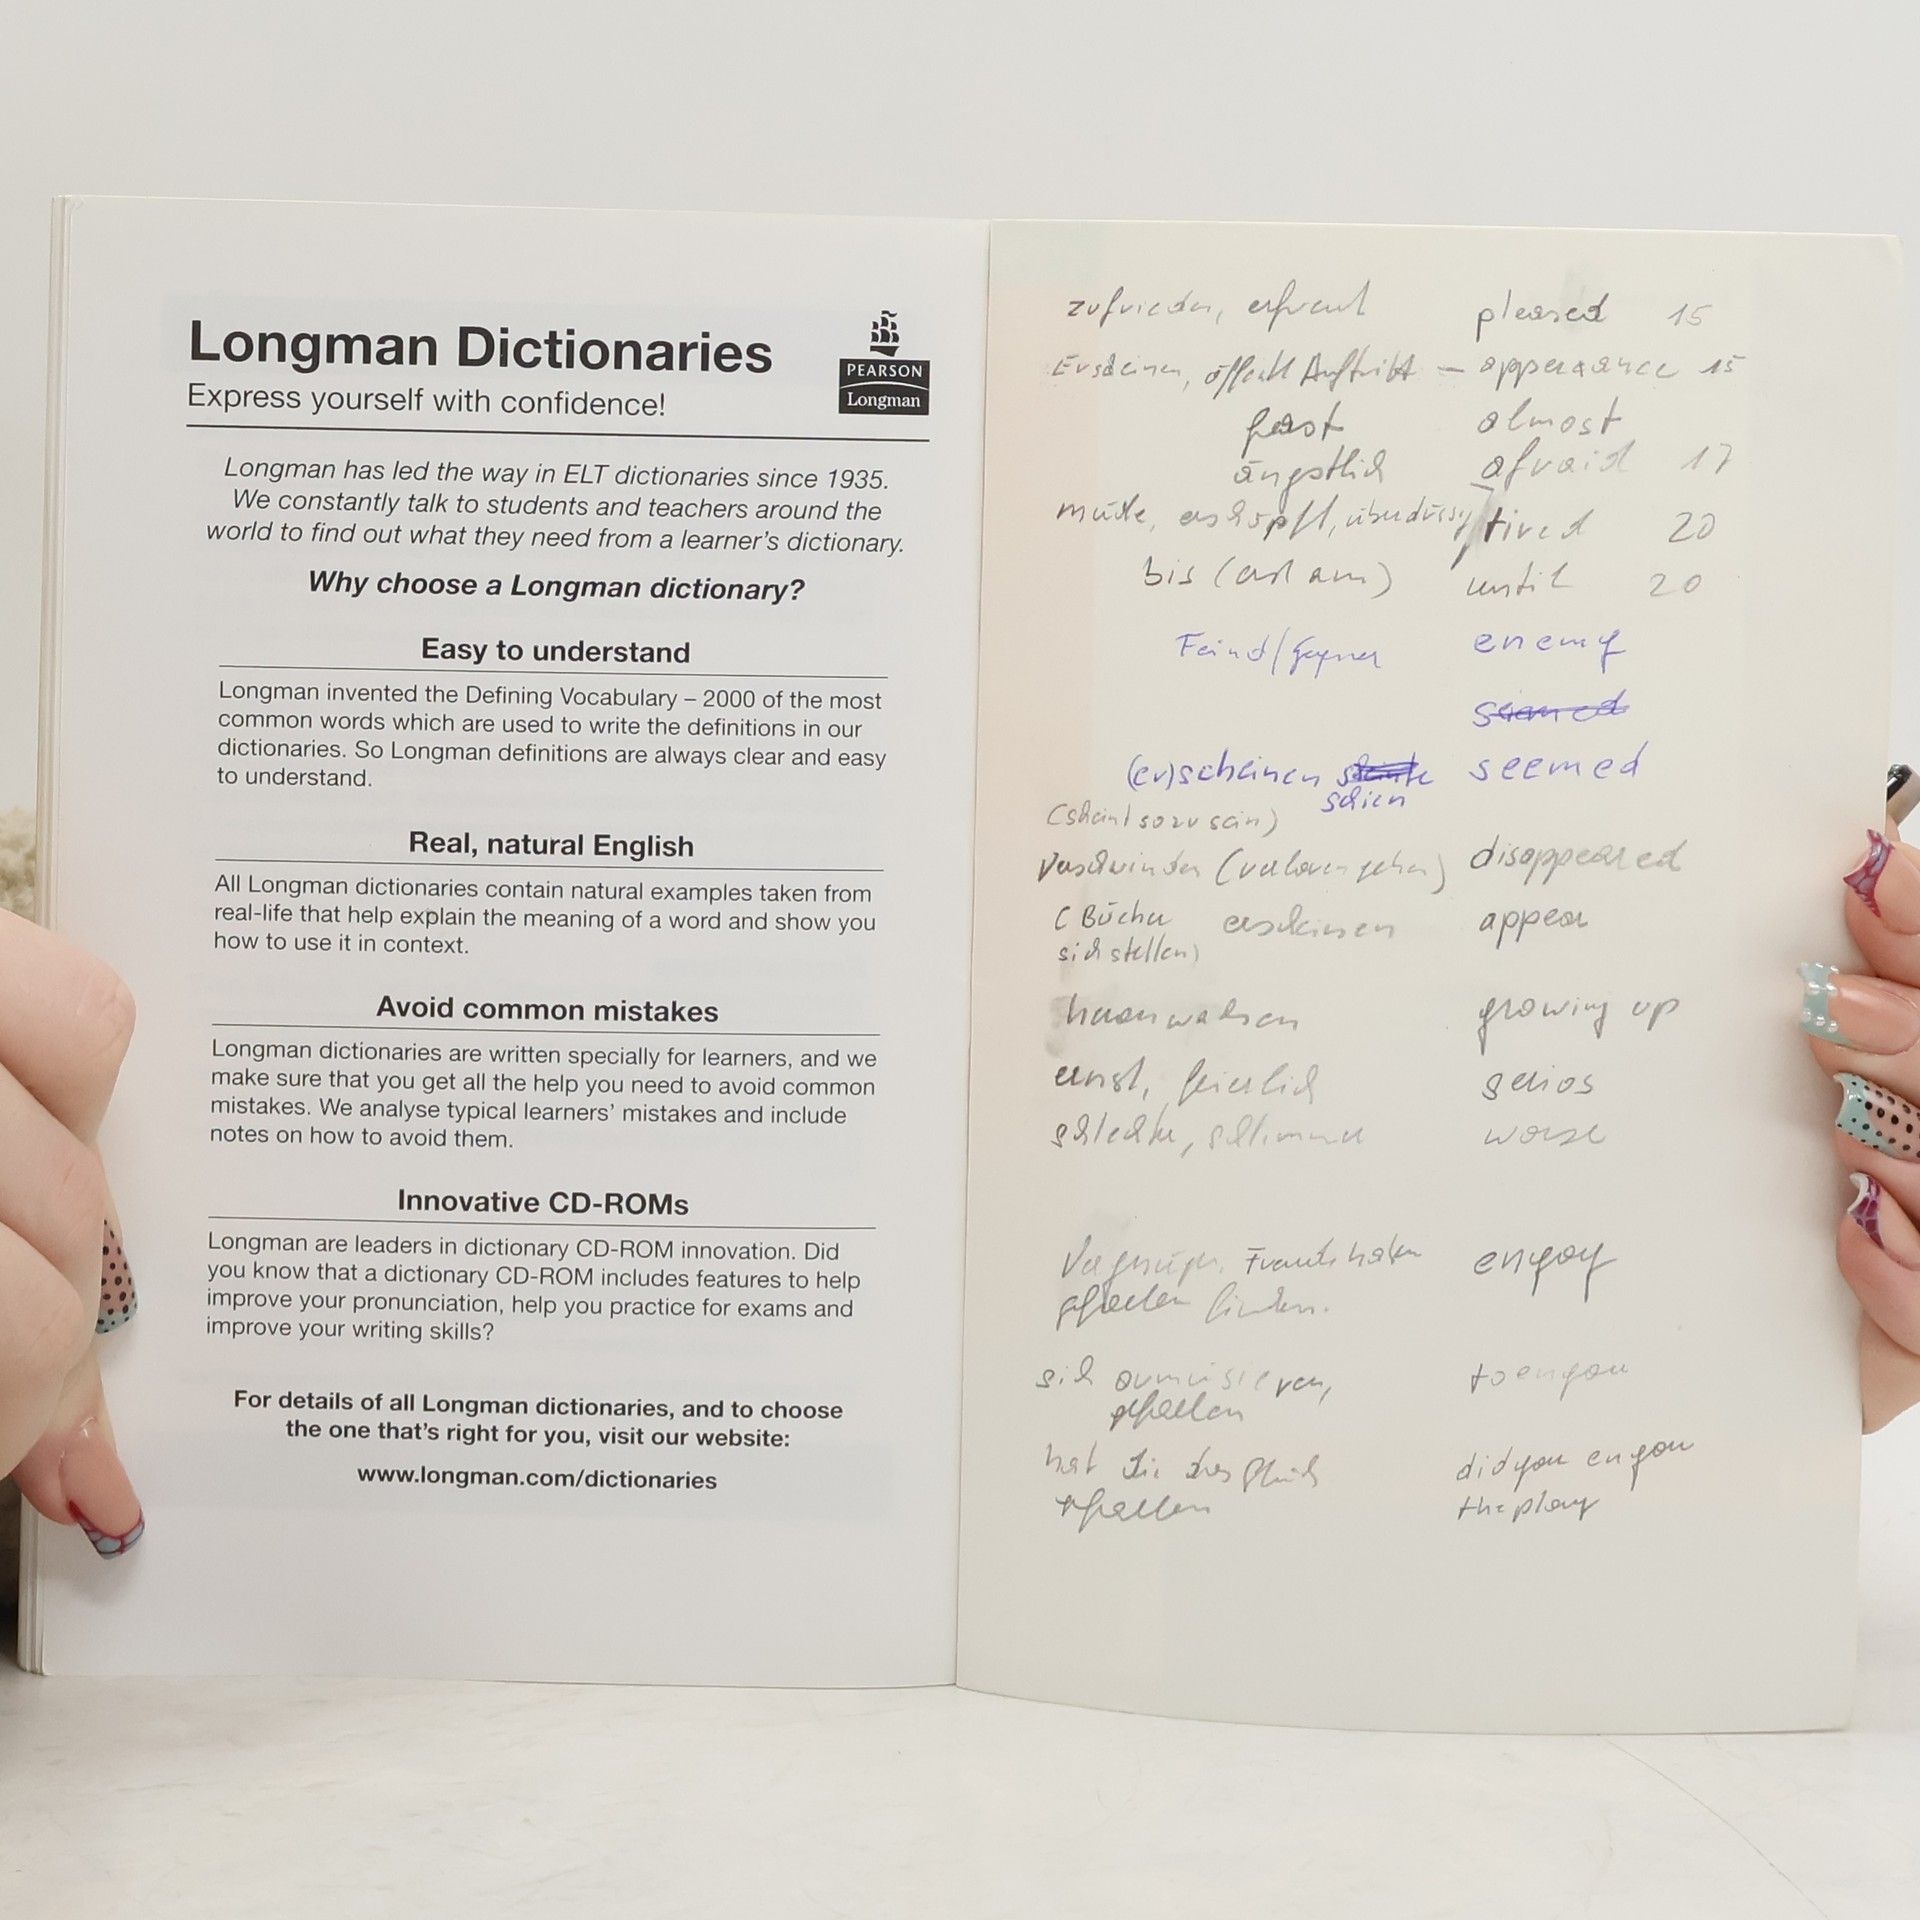 Longman Dictionaries
Express yourself with confidence!
PEARSON
Longman
Longman has led the way in ELT dictionaries since 1935.
We constantly talk to students and teachers around the
world to find out what they need from a learner's dictionary.
Why choose a Longman dictionary?
Easy to understand
Longman invented the Defining Vocabulary – 2000 of the most
common words which are used to write the definitions in our
dictionaries. So Longman definitions are always clear and easy
to understand.
Real, natural English
All Longman dictionaries contain natural examples taken from
real-life that help explain the meaning of a word and show you
how to use it in context.
Avoid common mistakes
Longman dictionaries are written specially for learners, and we
make sure that you get all the help you need to avoid common
mistakes. We analyse typical learners' mistakes and include
notes on how to avoid them.
Innovative CD-ROMs
Longman are leaders in dictionary CD-ROM innovation. Did
you know that a dictionary CD-ROM includes features to help
improve your pronunciation, help you practice for exams and
improve your writing skills?
For details of all Longman dictionaries, and to choose
the one that's right for you, visit our website:
www.longman.com/dictionaries
zufrieden, erfreut pleased 15
Erscheinen, öffentl Auftritt – 15
fast almost
ängstlich afraid 17
müde, erschöpft, tired 20
bis until 20
Feind/Gegner enemy
(er)scheinen seemed
schien
(scheint so zu sein)
verschwinden (verloren gehen) disappeared
(Bücher erscheinen appear
sich stellen)
growing up
ernst, feierlich serios
schlechter, schlimmer worse
Freude haben engoy
gefallen finden.
sich to engou
gefallen
hat Sie das did you engou
gefallen the play